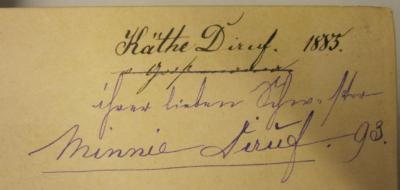 Käthe Diruf. 1885.
ihrer lieben Schwester
Minnie Diruf. 93.